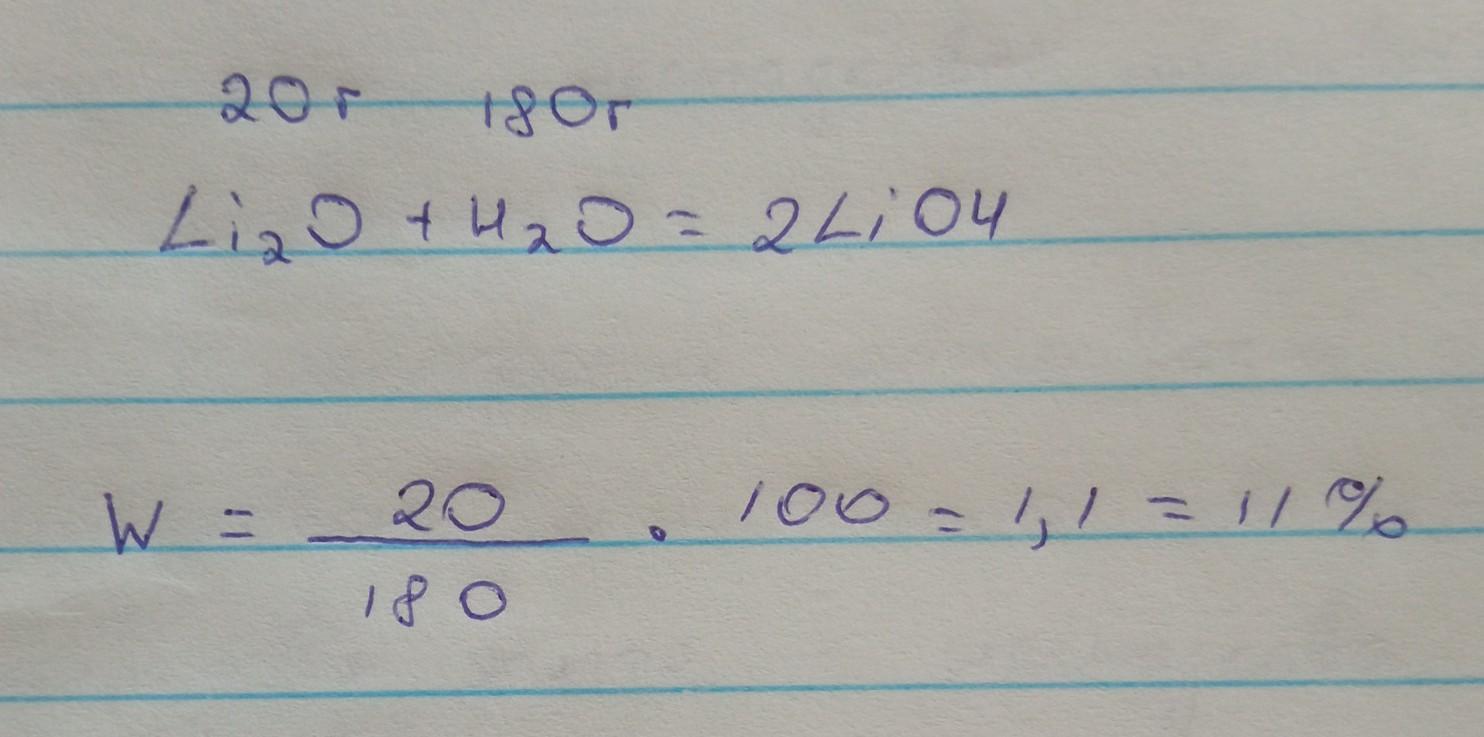 20г 180г
Li₂O + H₂O = 2LiOH
W = 20/180 · 100 = 1,1 = 11 %